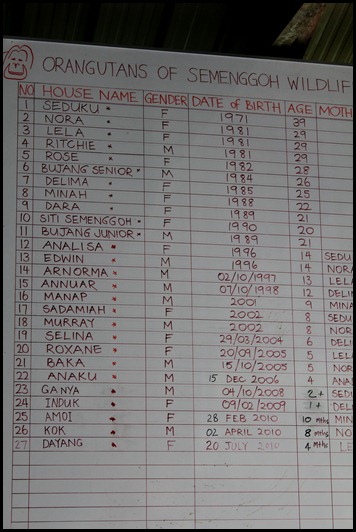 ORANGUTANS OF SEMENGGOH WILDLIF
NO HOUSE NAME GENDER DATE of BIRTH AGE MOTH
1 SEDUKU * F 1971 39
2 NORA * F 1981 29
3 LELA * F 1981 29
4 RITCHIE * M 1981 29
5 ROSE * F 1982 28
6 BUJANG SENIOR * M 1984 26
7 DELIMA * F 1985 25
8 MINAH * F 1988 22
9 DARA * F 1989 21
10 SITI SEMENGGOH * F 1990 20
11 BUJANG JUNIOR * M 1989 21
12 ANALISA * F 1996 14 SEDU
13 EDWIN * M 1996 14 NORA
14 ARNORMA * M 02/10/1997 13 LELA
15 ANNUAR * M 07/10/1998 12 DELI
16 MANAP * M 2001 9 MINA
17 SADAMIAH * F 2002 8 SEDU
18 MURRAY * M 2002 8 NOR
19 SELINA * F 29/03/2004 6 DELI
20 ROXANE * F 20/09/2005 5 LEL
21 BAKA * M 15/10/2005 5 NOR
22 ANAKU * M 15 DEC 2006 4 ANA
23 GANYA * M 04/10/2008 2+ SED
24 INDUK * F 09/02/2009 1+ DEL
25 AMOI * F 28 FEB 2010 10 Mths MIN
26 KOK * M 02 APRIL 2010 8 Mths NO
27 DAYANG * F 20 JULY 2010 4 Mths LE